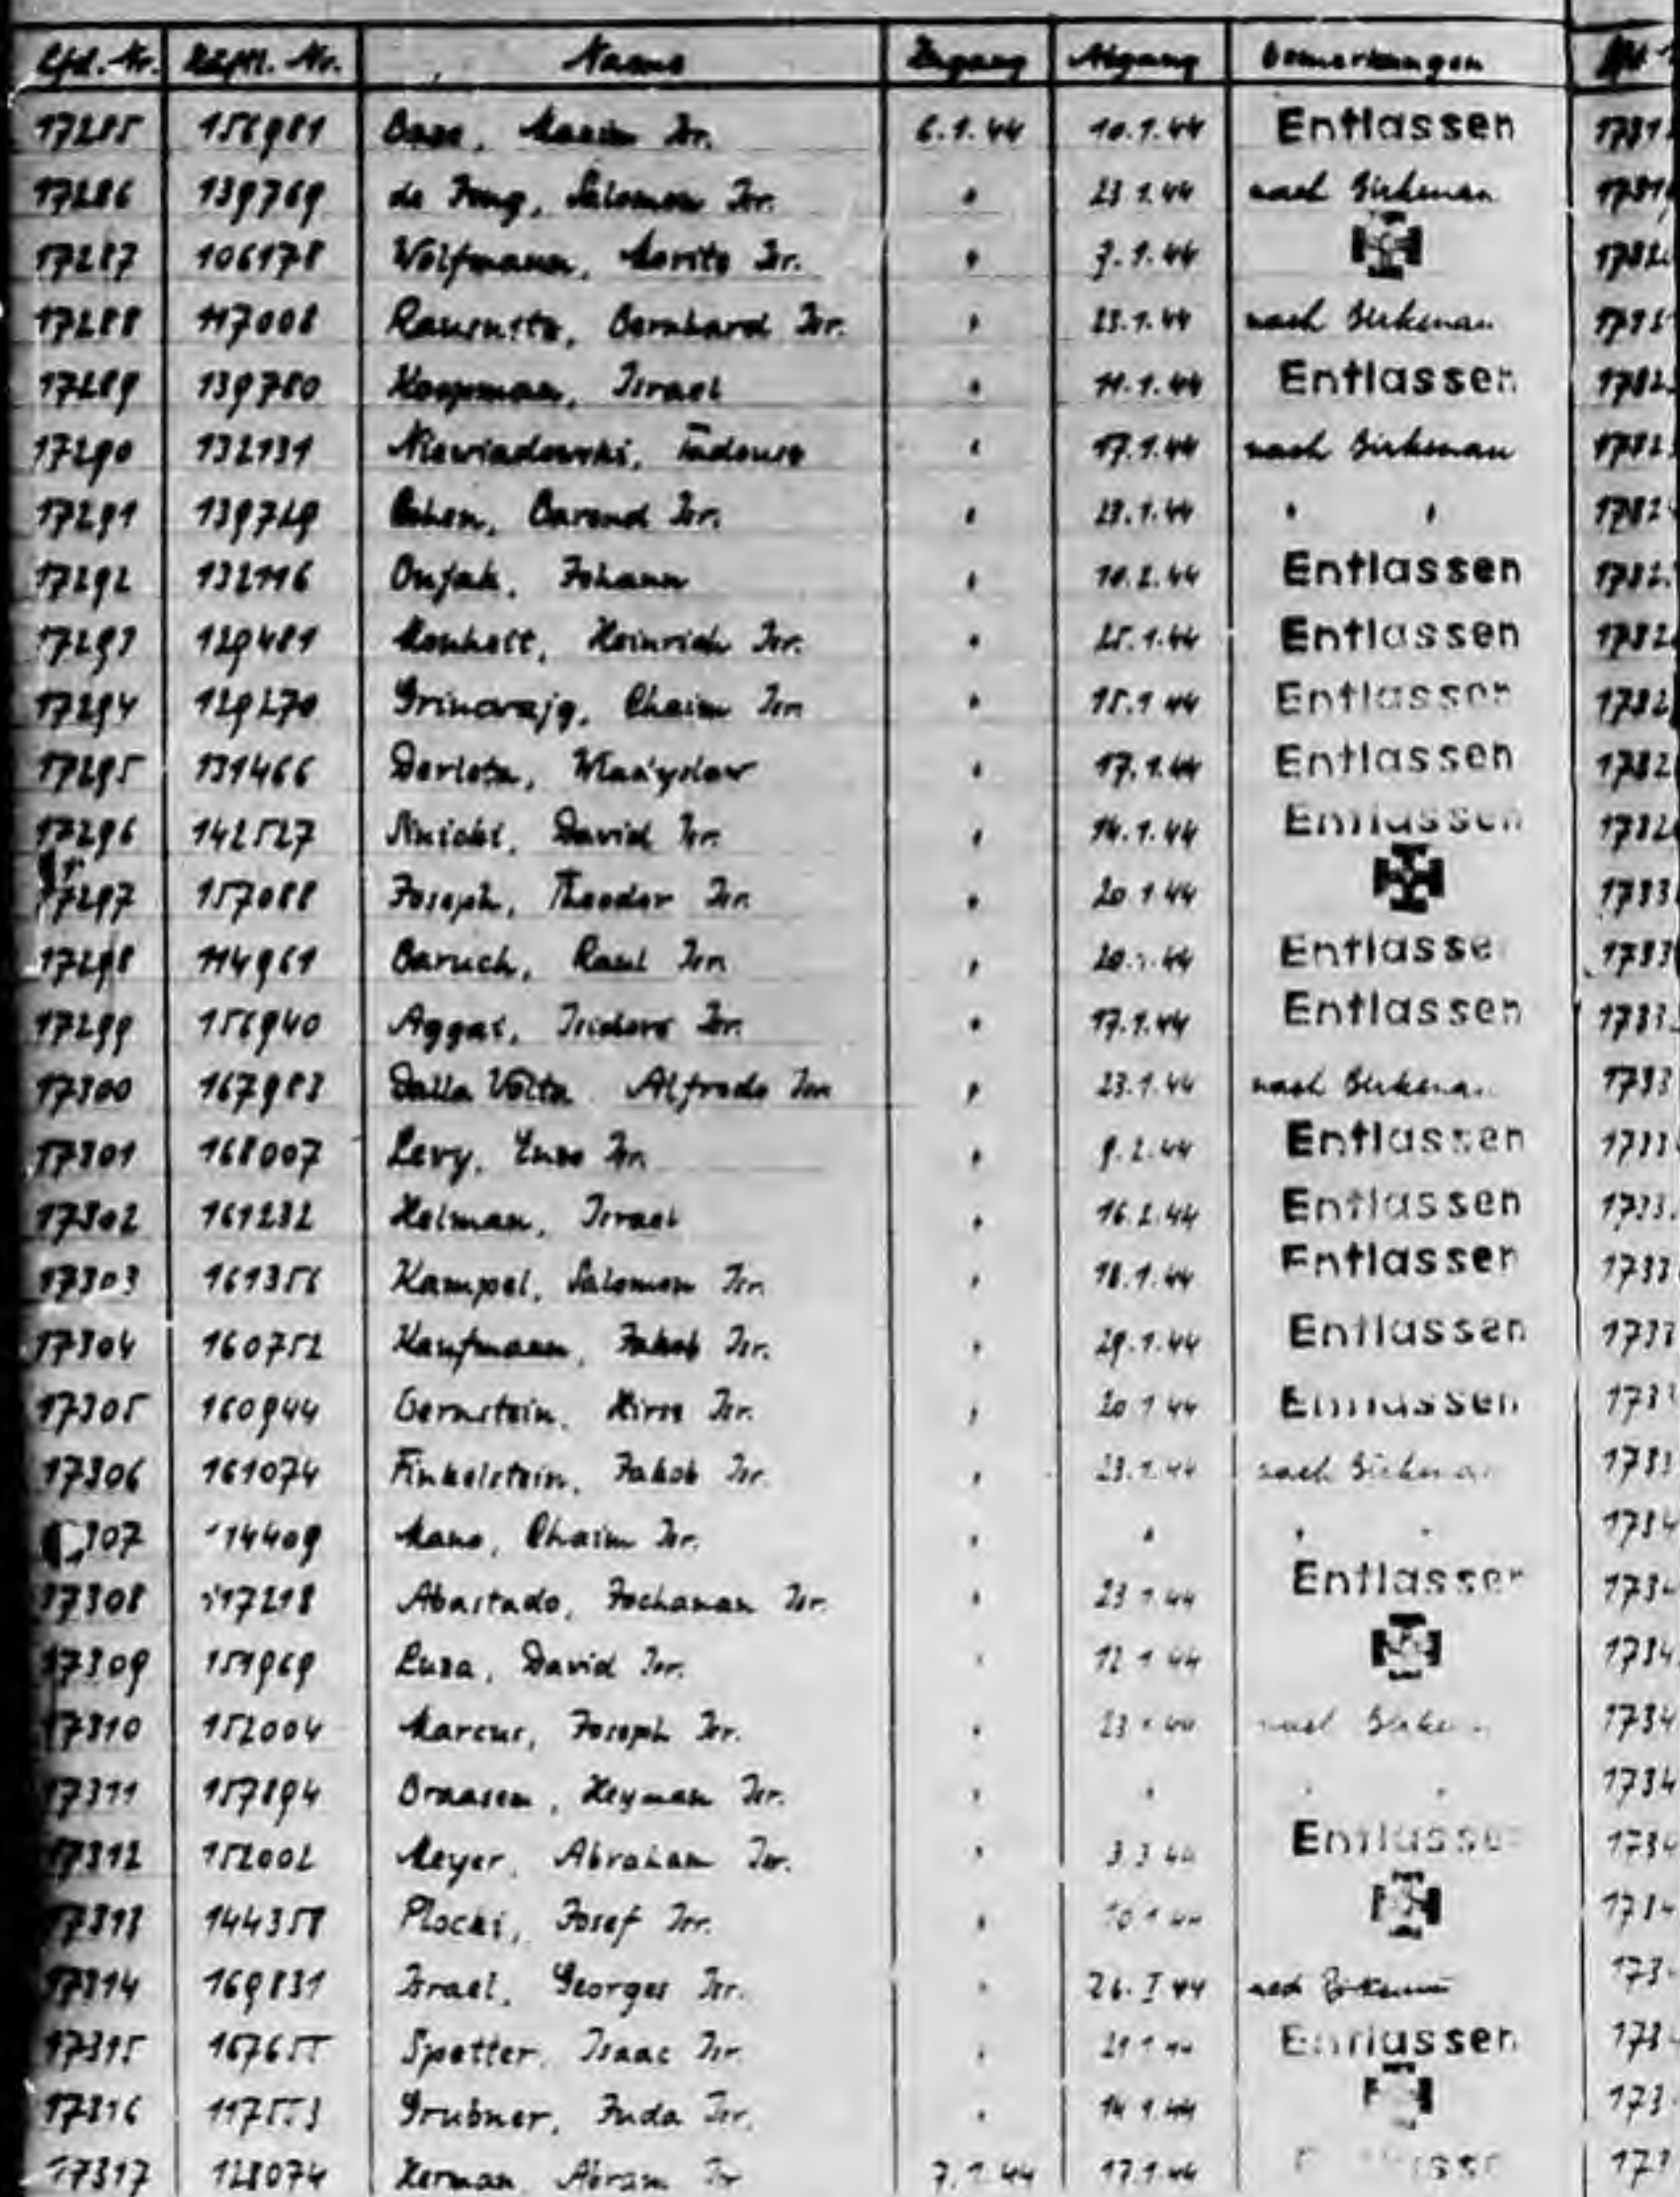 Lfd. Nr. Häftl. Nr. Name Zugang Abgang Bemerkungen
17285 156981 Isr. 6.1.44 10.1.44 Entlassen
17286 139769 de Jong, Salomon Isr. " 23.1.44 nach Birkenau
17287 106178 Wolfmann, Moritz Isr. " 7.1.44
17288 117008 Bernhard Isr. " 23.1.44 nach Birkenau
17289 139780 Koopman, Israel " 11.1.44 Entlassen
17290 132131 Niewiadowski, Tadeusz " 17.1.44 nach Birkenau
17291 139729 Cohen, Barend Isr. " 23.1.44 " "
17292 132116 Johann " 10.2.44 Entlassen
17293 129481 Monheit, Heinrich Isr. " 25.1.44 Entlassen
17294 129270 Grincvajg, Chaim Isr. " 15.1.44 Entlassen
17295 131466 Derleta, Wladyslaw " 17.1.44 Entlassen
17296 142527 David Isr. " 14.1.44 Entlassen
17297 157088 Joseph, Theodor Isr. " 20.1.44
17298 114961 Baruch, Raul Isr. " 20.1.44 Entlasse
17299 156940 Isidoro Isr. " 17.1.44 Entlassen
17300 167983 Dalla Volta Alfredo Isr. " 23.1.44 nach Birkenau
17301 168007 Levy, Enzo Isr. " 9.2.44 Entlassen
17302 161232 Helman, Israel " 16.2.44 Entlassen
17303 161356 Kampel, Salomon Isr. " 18.1.44 Entlassen
17304 160752 Kaufmann, Jakob Isr. " 29.1.44 Entlassen
17305 160944 Gernstein, Hirsz Isr. " 20.1.44 Entlassen
17306 161074 Finkelstein, Jakob Isr. " 23.1.44 nach Birkenau
307 114409 Mano, Chaim Isr. " " " "
17308 117218 Abastado, Jochanan Isr. " 23.1.44 Entlassen
17309 151969 Luza, David Isr. " 12.1.44
17310 152004 Marcus, Joseph Isr. " 23.1.44 nach Birkenau
17311 157894 Braasem, Heyman Isr. " " " "
17312 152002 Meyer, Abraham Isr. " 3.3.44 Entlassen
17313 144358 Plocki, Josef Isr. " 10.1.44
17314 169831 Israel, Georges Isr. " 26.I.44 nach Birkenau
17315 167655 Spetter, Isaac Isr. " 21.1.44 Entlassen
17316 117553 Grubner, Juda Isr. " 14.1.44
17317 128074 Herman, Abram Isr. 7.1.44 17.1.44